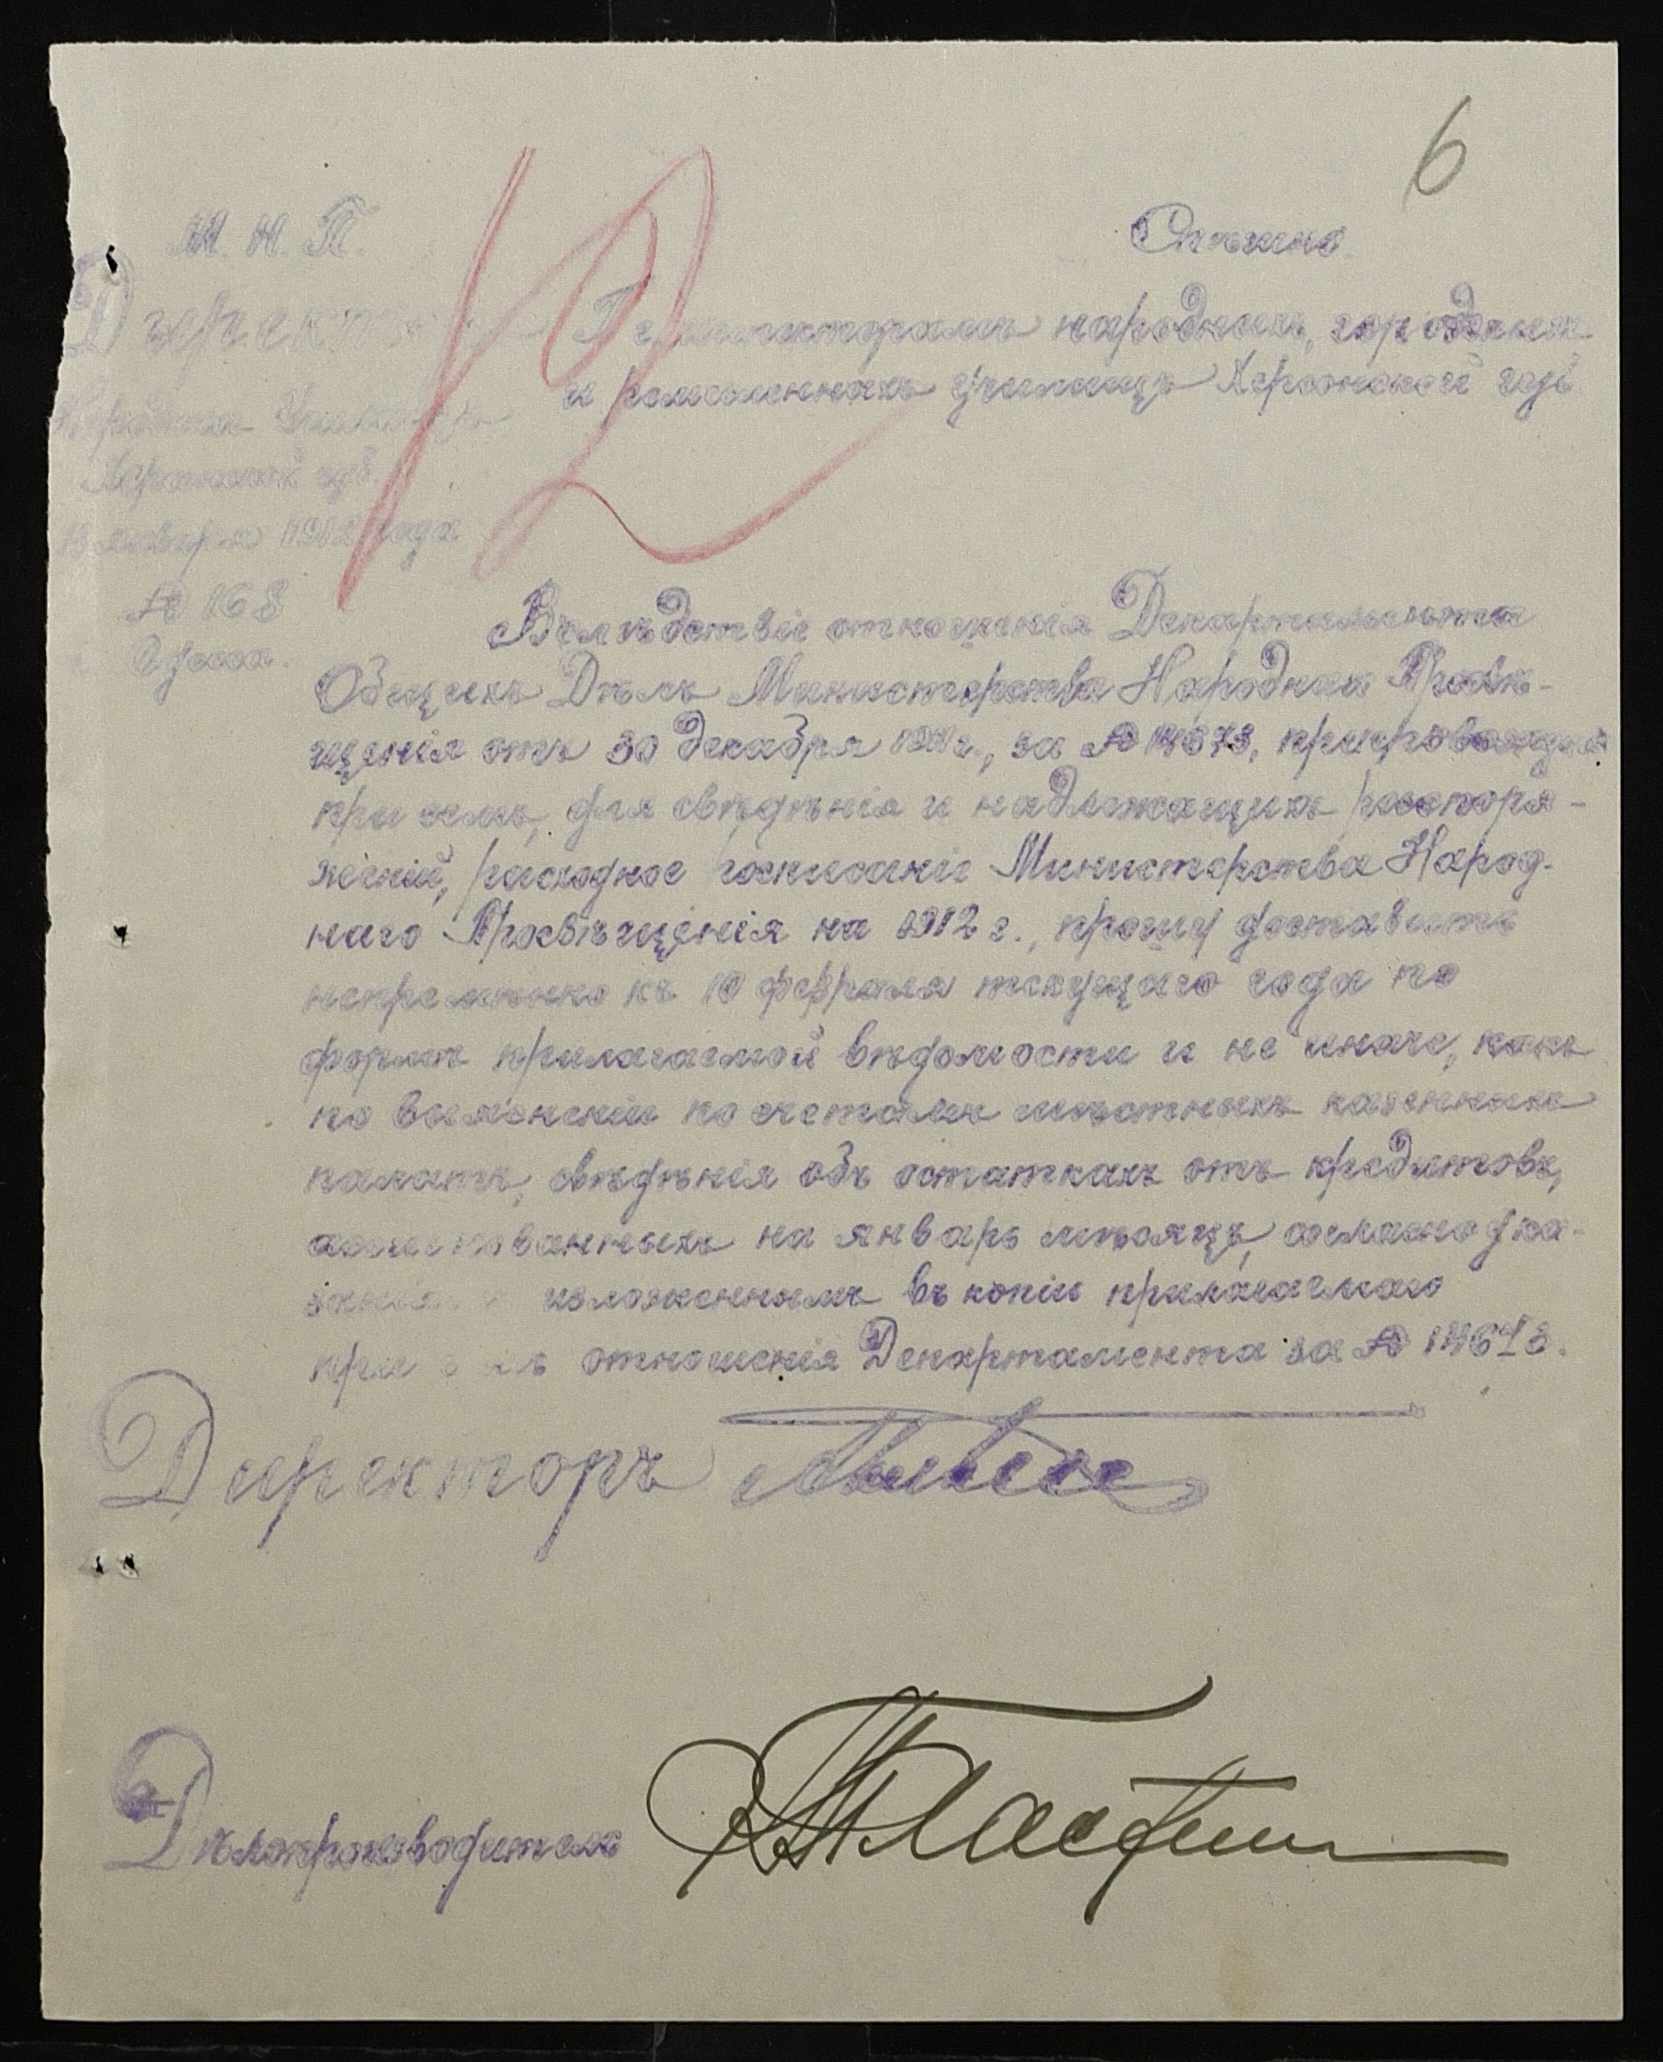 6
12
М. Н. П.
Спѣшно.
Директоръ
Г.г. инспекторамъ народныхъ, городскихъ
и ремесленныхъ училищъ Херсонской губ.
Народныхъ Училищъ
Херсонской губ.
января 1912 года
№ 168
Одесса.
Вслѣдствіе отношенія Департамента
Общихъ Дѣлъ Министерства Народнаго Просвѣ-
щенія отъ 30 декабря 1911 г., за № 14673, препровождая
при семъ, для свѣдѣнія и надлежащихъ распоря-
женій, расходное росписаніе Министерства Народ-
наго Просвѣщенія на 1912 г., прошу доставить
непремѣнно къ 10 февраля текущаго года по
формѣ прилагаемой вѣдомости и не иначе, какъ
по выясненіи по счетамъ мѣстныхъ казенныхъ
палатъ, свѣдѣнія объ остаткахъ отъ кредитовъ,
ассигнованныхъ на январь мѣсяцъ, согласно ука-
занія изложеннымъ въ копіи прилагаемаго
при семъ отношенія Департамента за № 14673.
Директоръ
Дѣлопроизводитель